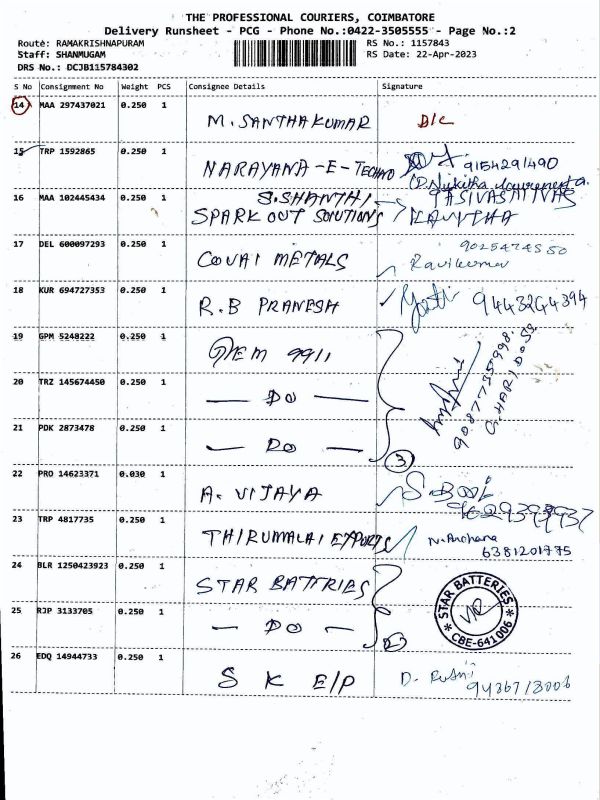 THE PROFESSIONAL COURIERS, COIMBATORE
Delivery Runsheet - PCG - Phone No.:0422-3505555 - Page No.:2
Route: RAMAKRISHNAPURAM RS No.: 1157843
Staff: SHANMUGAM RS Date: 22-Apr-2023
DRS No.: DCJB115784302
S No Consignment No Weight PCS Consignee Details Signature
14 MAA 297437021 0.250 1
M. SANTHAKUMAR D/C
15 TRP 1592865 0.250 1
NARAYANA-E-TECHNO 9154291490
16 MAA 102445434 0.250 1
S. SHANTHI
SPARKOUT SOLUTIONS KAVITHA
17 DEL 600097293 0.250 1
COVAI METALS Ravikumar
18 KUR 694727353 0.250 1
R.B PRANESH 9443264394
19 GPM 5248222 0.250 1
9911
20 TRZ 145674450 0.250 1
— DO —
21 PDK 2873478 0.250 1
— DO — 3
G. HARI DOSS
22 PRO 14623371 0.030 1
A. VIJAYA
23 TRP 4817735 0.250 1
THIRUMALAI EXPORTS N. Archana
6381201775
24 BLR 1250423923 0.250 1
STAR BATTRIES
STAR BATTERIES
CBE-641006
25 RJP 3133705 0.250 1
— DO — 2
26 EDQ 14944733 0.250 1
S K E/P